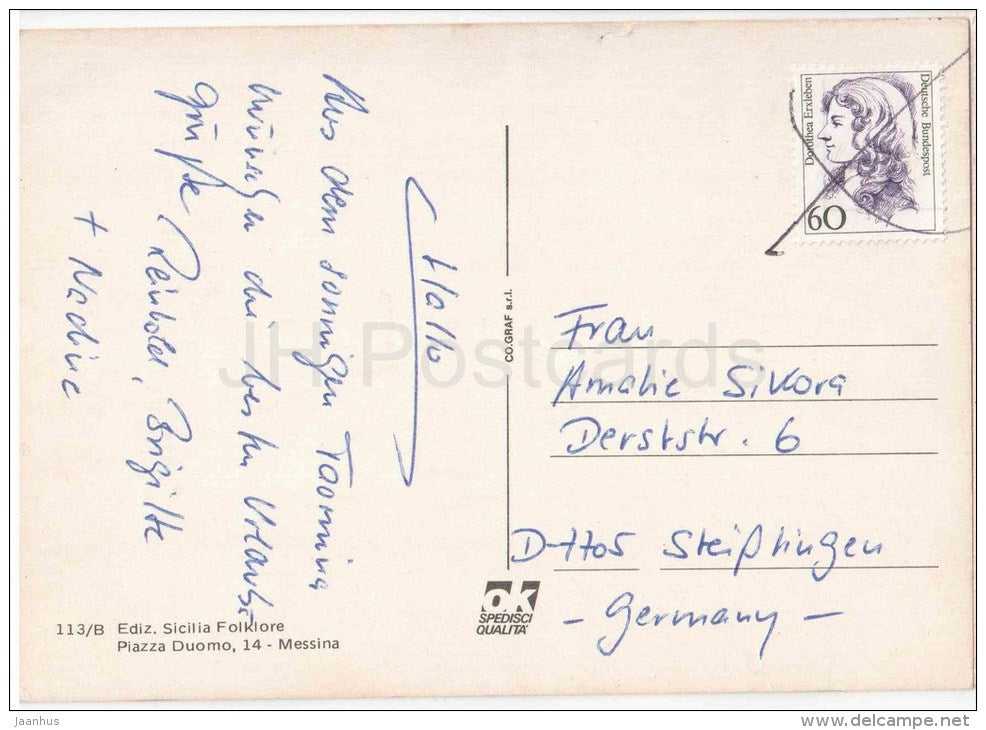 Hallo
Aus dem sonnigen Taormina
wünschen die besten Urlaubs-
grüße Reinhold, Brigitte
+ Nadine
113/B Ediz. Sicilia Folklore
Piazza Duomo, 14 - Messina
CO.GRAF s.r.l.
OK
SPEDISCI
QUALITA'
Deutsche Bundespost
Dorothea Erxleben
60
Frau
Amalie Sikora
Derststr. 6
D-7705 Steißlingen
- Germany -
JH Postcards
Jaanhus
www.delcampe.net